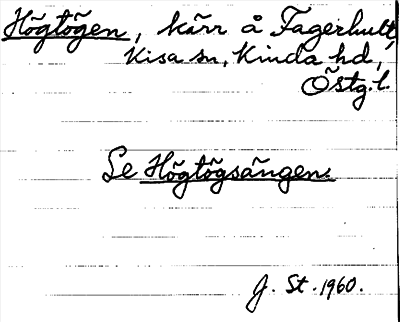 Högtögen, kärr å Fagerhult,
Kisa sn, Kinda hd,
Östg.l.
Se Högtögsängen.
J. St. 1960.